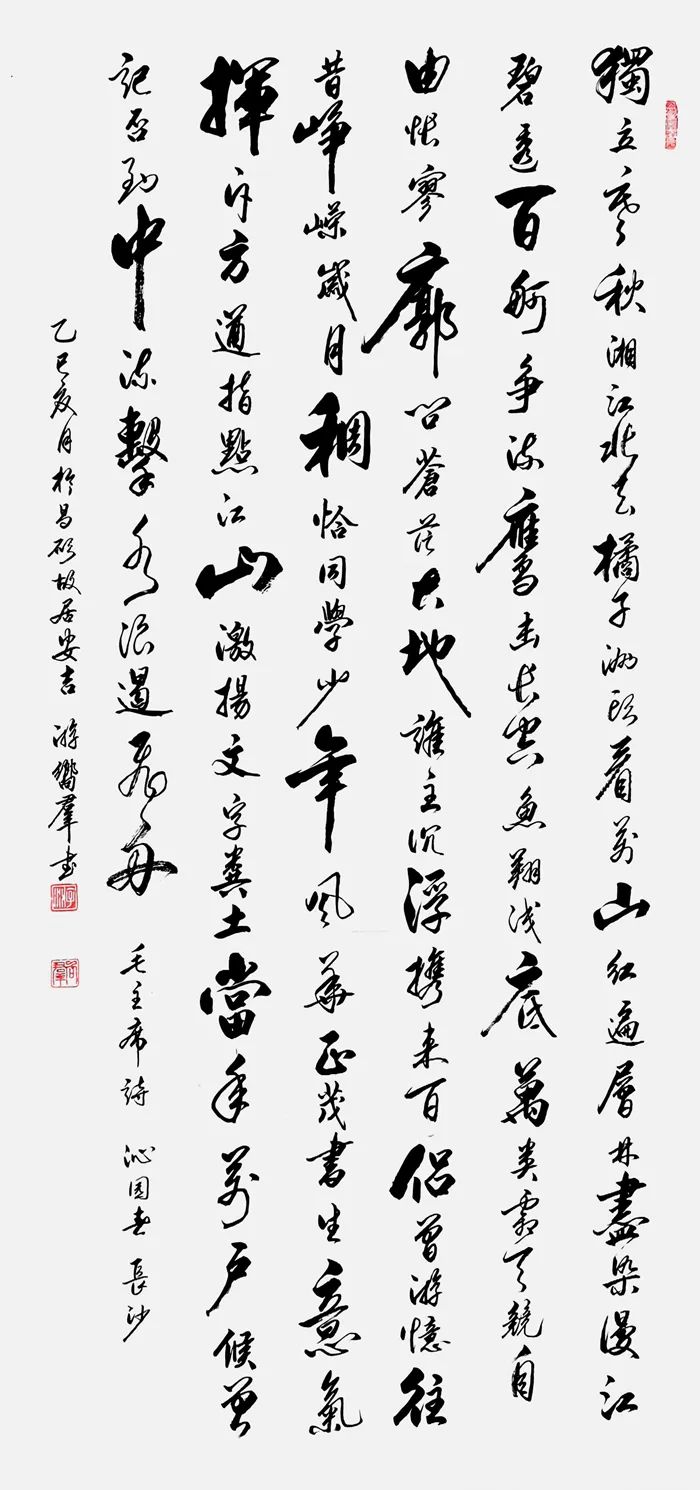 獨立寒秋湘江北去橘子洲頭看萬山紅遍層林盡染漫江
碧透百舸争流鷹击長空魚翔浅底萬类霜天競自
由悵寥廓问蒼茫大地誰主沉浮携来百侣曾游憶往
昔崢嶸歲月稠恰同學少年風華正茂書生意氣
揮斥方遒指點江山激揚文字糞土當年萬户候曾
記否到中流擊水浪遏飛舟 毛主席詩 沁園春 長沙
乙巳夏月於昌硕故居安吉 游嚮羣书